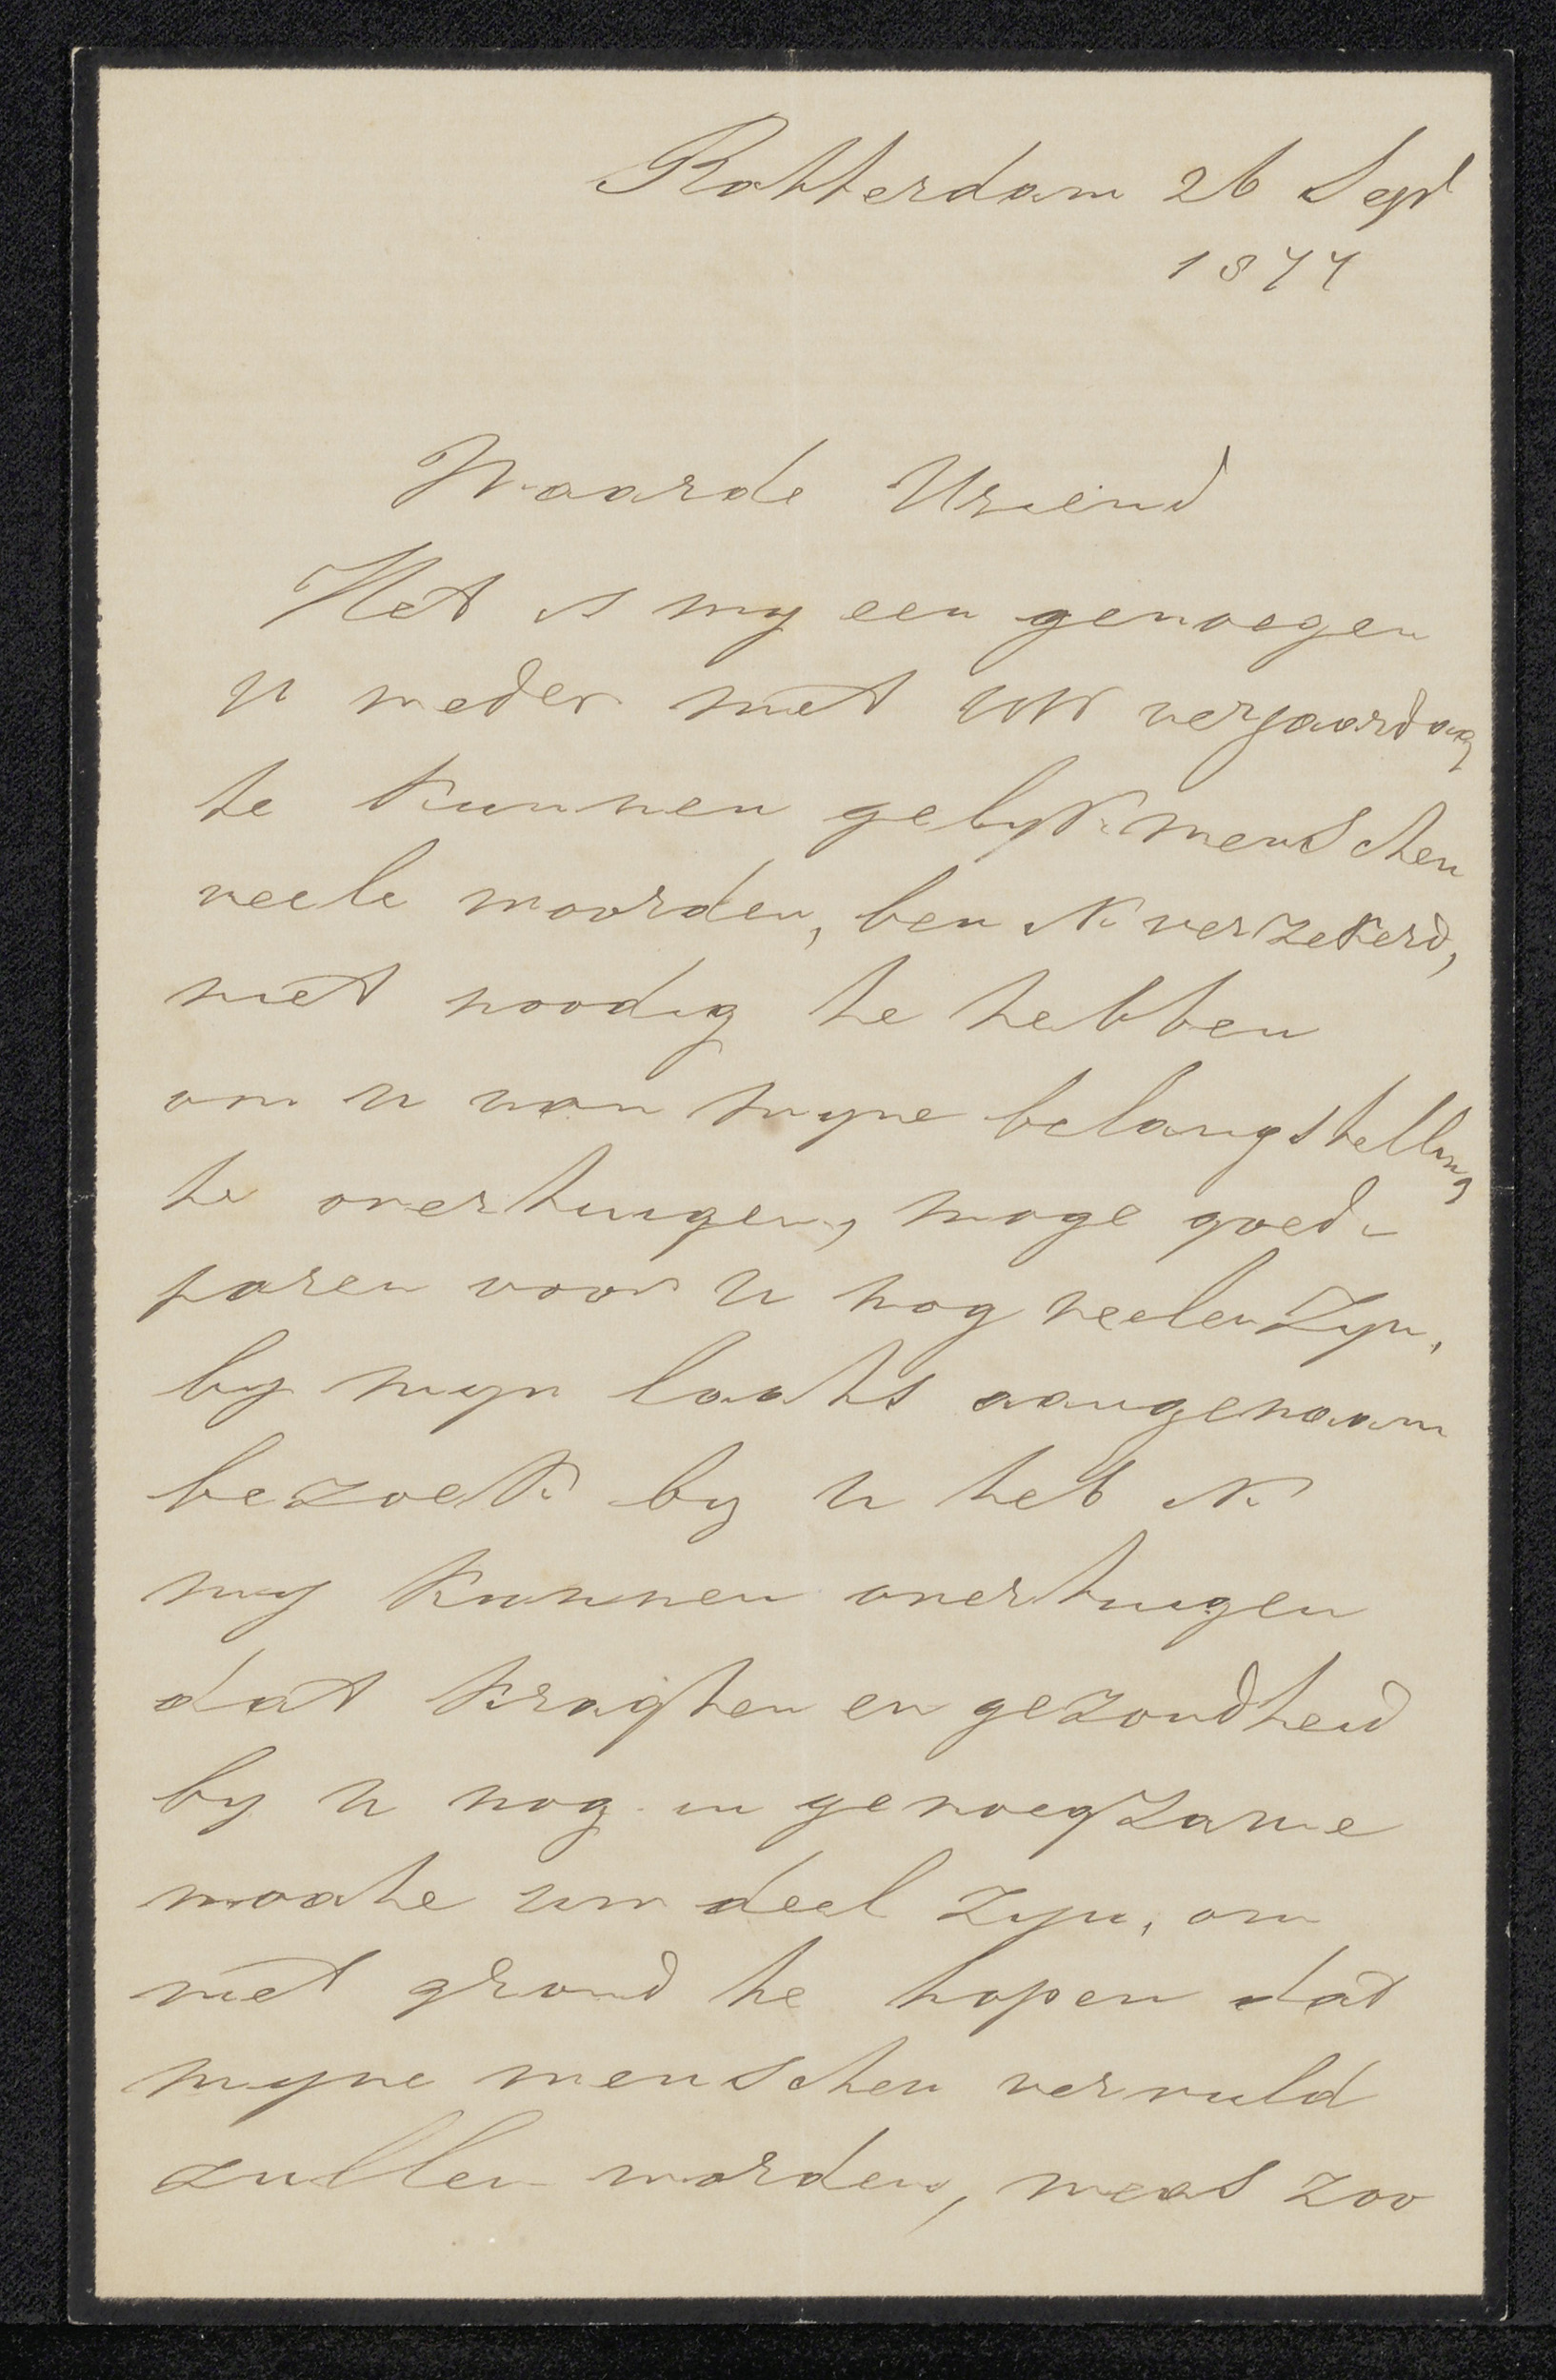 Rotterdam 26 Sept
1877
Waarde Vriend
Het is my een genoegen
U weder met uw verjaardag
te kunnen gelukwenschen
veele woorden, ben ik verzekerd,
niet noodig te hebben
om u van myne belangstelling
te overtuigen, moge goede
jaren voor U nog veelen zyn,
by myn laats aangenaam
bezoek by u heb ik
my kunnen overtuigen
dat kragten en gezondheid
by u nog in genoegzame
maate uw deel zyn, om
met grond te hopen dat
myne wenschen vervuld
zullen worden, wees zoo